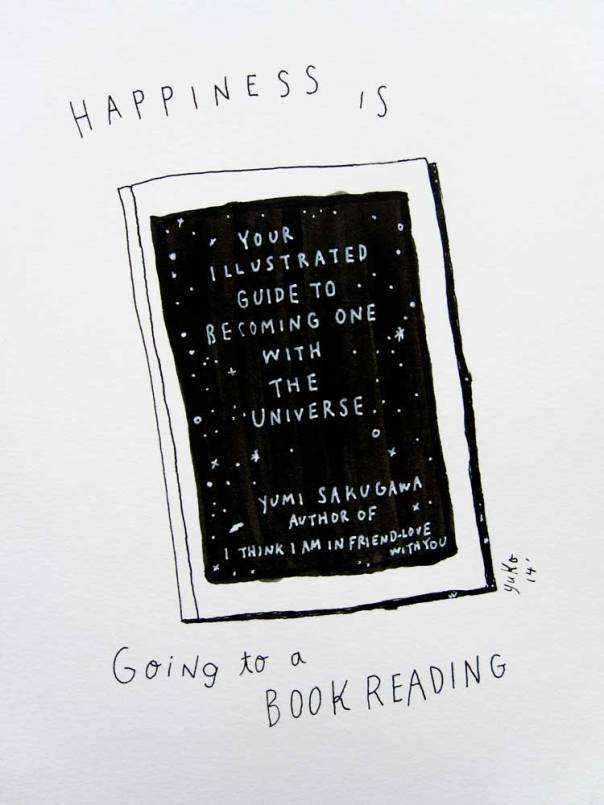 HAPPINESS IS
YOUR
ILLUSTRATED
GUIDE TO
BECOMING ONE
WITH
THE
UNIVERSE
YUMI SAKUGAWA
AUTHOR OF
I THINK I AM IN FRIEND-LOVE
WITH YOU
yuko
14'
GOiNg to a
BOOK READING